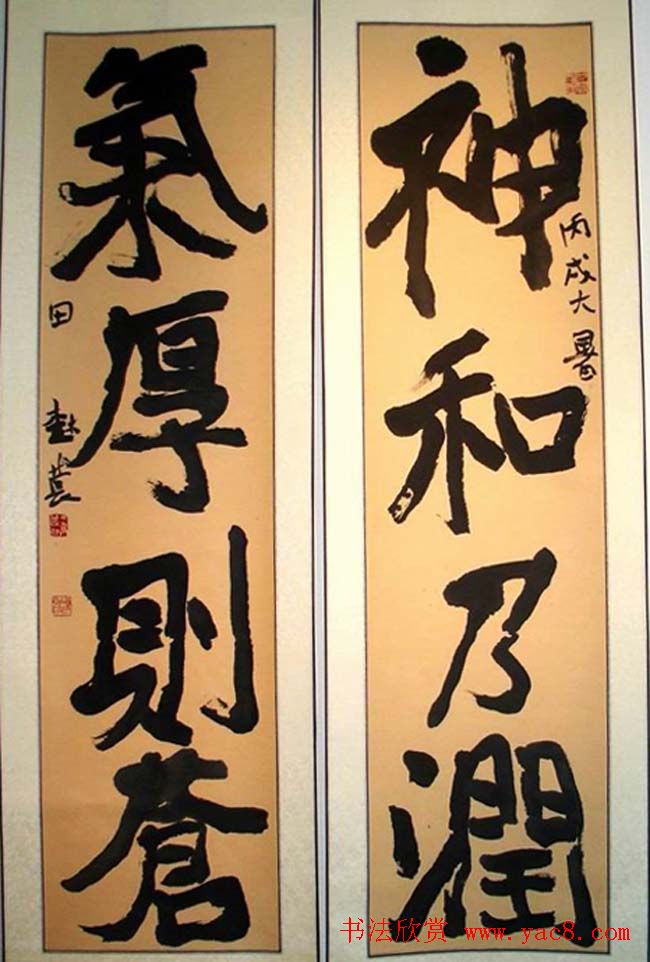 神和乃潤
丙戌大暑
氣厚則蒼
田樹萇
书法欣赏 www.yac8.com